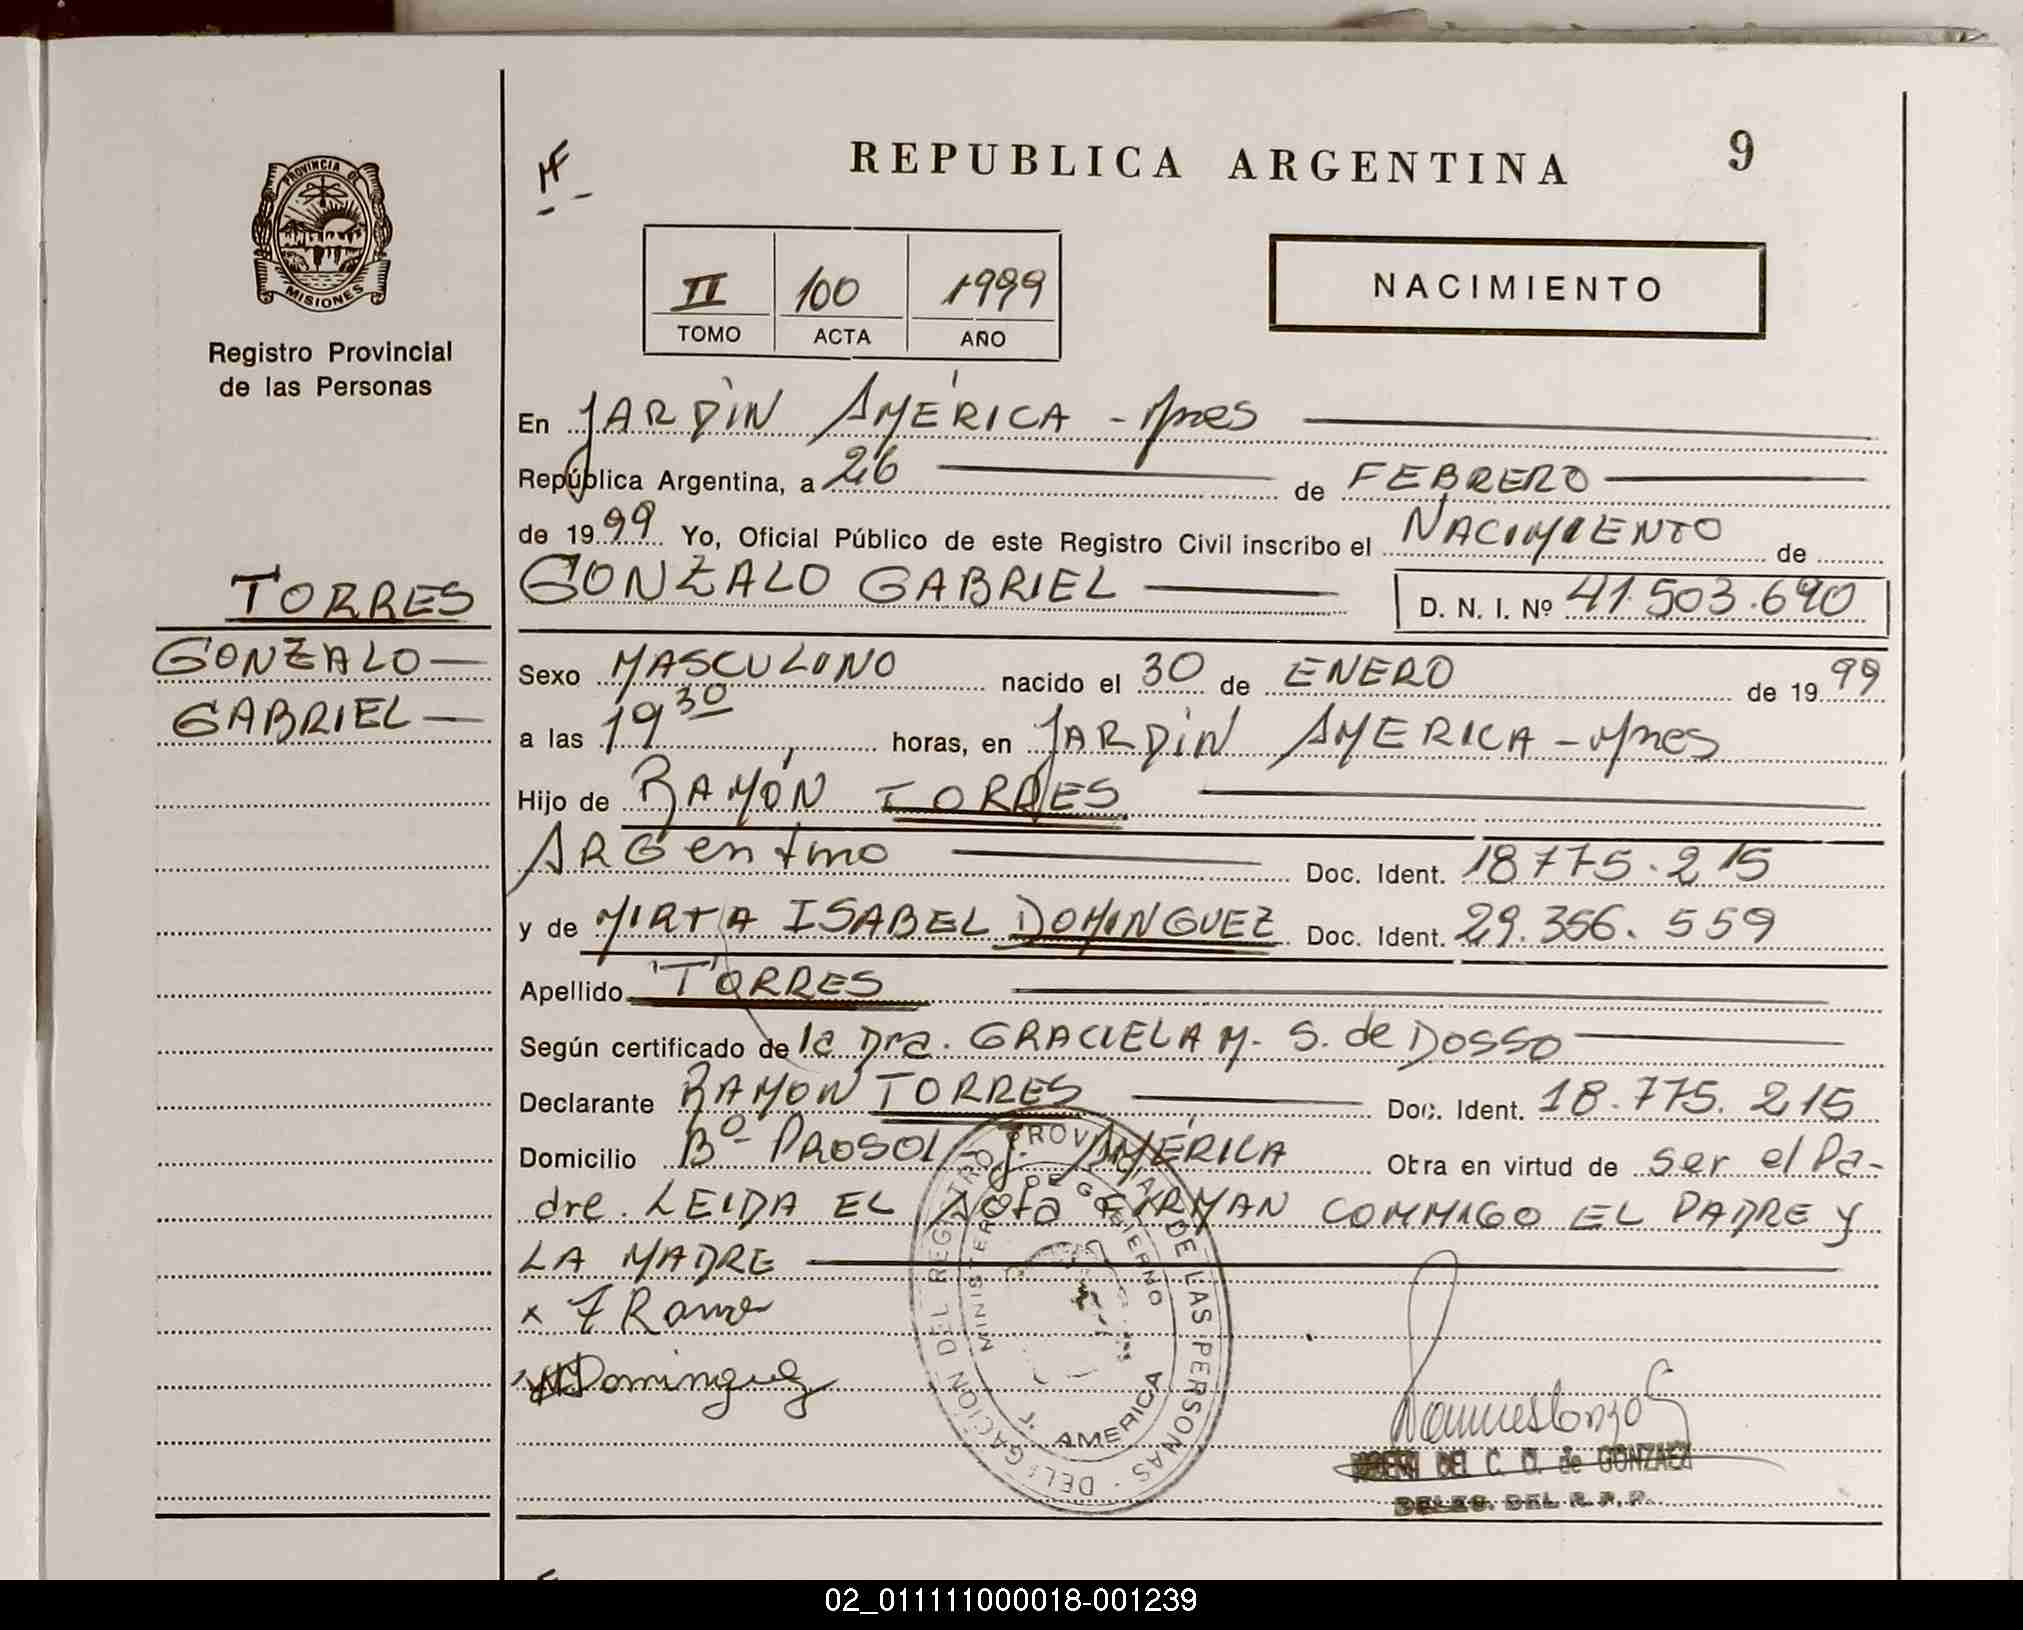 PROVINCIA DE
MISIONES
Registro Provincial
de las Personas
TORRES
GONZALO
GABRIEL
REPUBLICA ARGENTINA
9
II 100 1999
TOMO ACTA AÑO
NACIMIENTO
En JARDÍN AMÉRICA - Mnes
República Argentina, a 26 de FEBRERO
de 1999 Yo, Oficial Público de este Registro Civil inscribo el NACIMIENTO de
GONZALO GABRIEL D. N. I. Nº 41.503.690
Sexo MASCULINO nacido el 30 de ENERO de 1999
a las 19 30 horas, en JARDIN AMERICA - Mnes
Hijo de RAMÓN TORRES
ARGentino Doc. Ident. 18775.215
y de MIRTA ISABEL DOMINGUEZ Doc. Ident. 29.356.559
Apellido TORRES
Según certificado de la Dra. GRACIELA M. S. de DOSSO
Declarante RAMON TORRES Doc. Ident. 18.775.215
Domicilio Bº PROSOL - J. AMÉRICA Obra en virtud de ser el Pa-
dre. LEIDA EL Acta FIRMAN COMMIGO EL PADRE y
LA MADRE
x T Ramo
Dominguez
DELEGACION DEL REGISTRO PROVINCIAL DE LAS PERSONAS
MINISTERIO DE GOBIERNO
J. AMERICA
DEL C. D. de GONZALEZ
DELEG. DEL R. P. P.
02_011111000018-001239